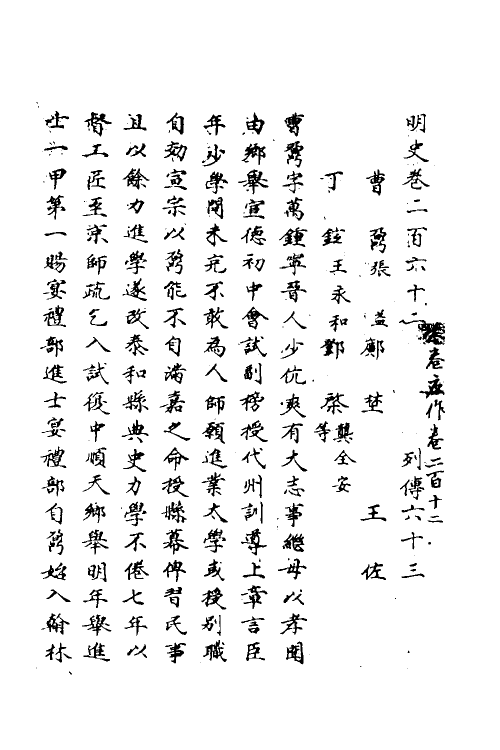 明史卷二百六十二　列傳六十三
卷應作卷二百十二
曹鼐　張益　鄺埜　王佐
丁鉉　王永和　鄧棨　龔全安等
曹鼐字萬鍾寧晉人少伉爽有大志事繼母以孝聞
由鄉舉宣德初中會試副榜授代州訓導上章言臣
年少學問未充不敢為人師願進業太學或授别職
自効宣宗以鼐能不自滿嘉之命授縣幕俾習民事
且以餘力進學遂改泰和縣典史力學不倦七年以
督工匠至京師疏乞入試復中順天鄉舉明年舉進
士一甲第一賜宴禮部進士宴禮部自鼐始入翰林